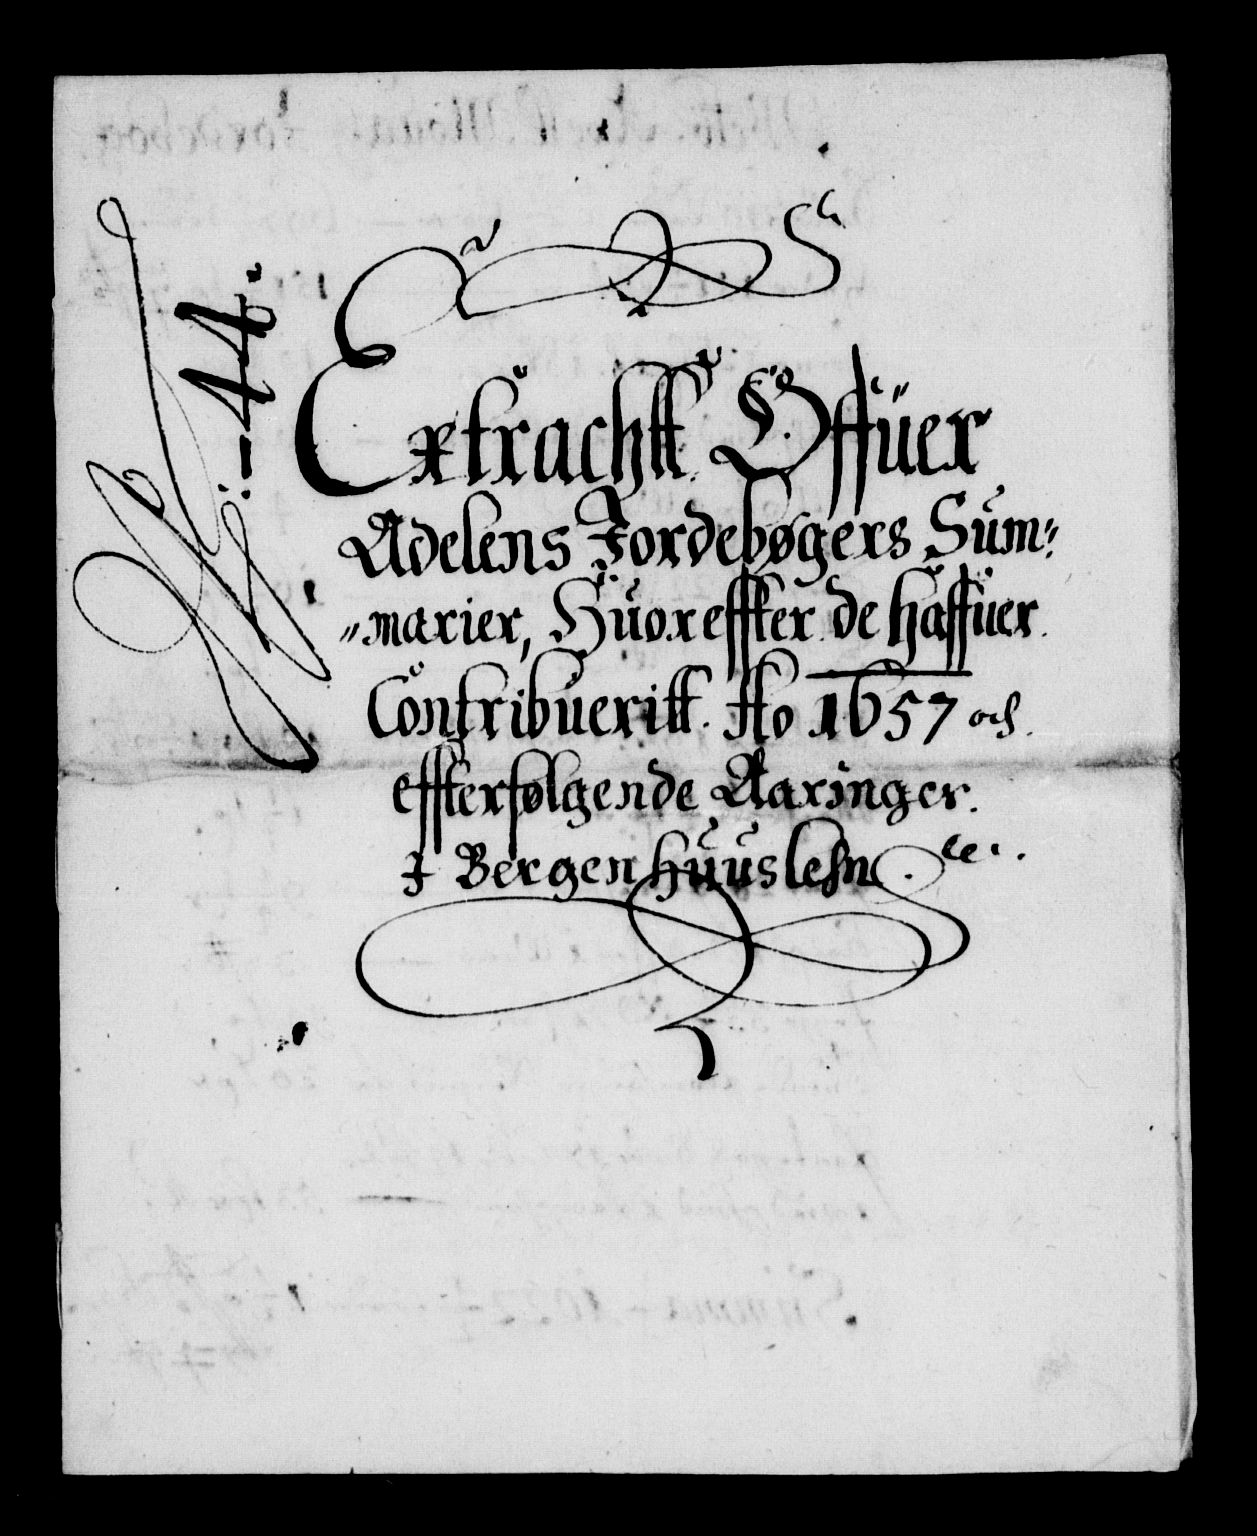 N: 44.
Extrachtt Offuer
Adelens Jordebøgers Sum=
=marier, Huoreffter de haffuer
Contribueritt Ao 1657 och
effterfølgende Aaringer.
I Bergenhuuslehn.